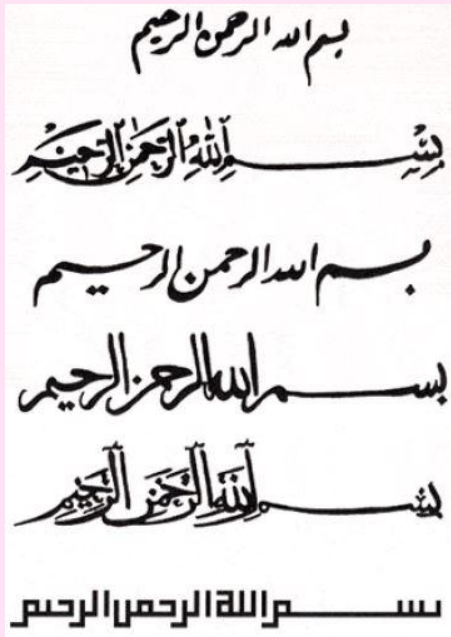 بسم الله الرحمن الرحيم
بِسْمِ اللهِ الرَّحْمٰنِ الرَّحِيْمِ
بسم الله الرحمن الرحيم
بسم الله الرحمن الرحيم
بِسْمِ اللهِ الرَّحْمٰنِ الرَّحِيمِ
بسم الله الرحمن الرحيم